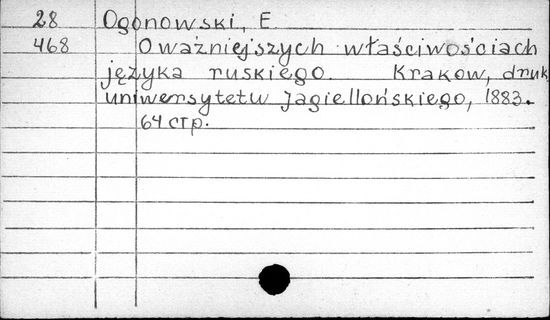 28 Ogonowski, E
468 O ważniejszych właściwościach
języka ruskiego. Krakow, druk,
uniwersytetu Jagiellońskiego, 1883.
64 стр.